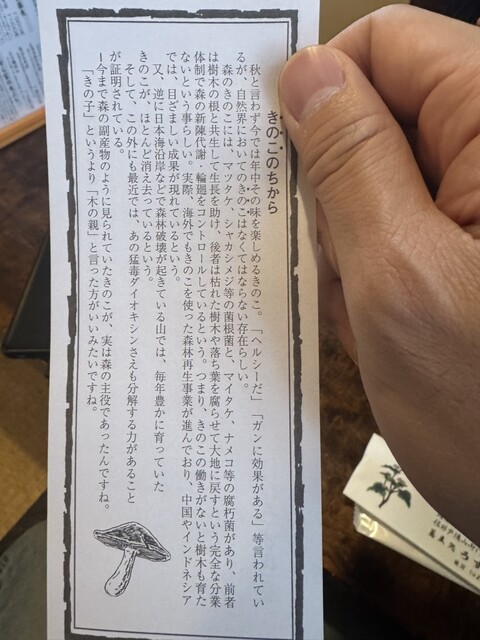 きのこのちから
秋と言わず今では年中その味を楽しめるきのこ。「ヘルシーだ」「ガンに効果がある」等言われてい
るが、自然界においてのきのこはなくてはならない存在らしい。
森のきのこには、マツタケ、シャカシメジ等の菌根菌と、マイタケ、ナメコ等の腐朽菌があり、前者
は樹木の根と共生して生長を助け、後者は枯れた樹木や落ち葉を腐らせて大地に戻すという完全な分業
体制で森の新陳代謝・輪廻をコントロールしているという。つまり、きのこの働きがないと樹木も育た
ないという事らしい。実際、海外でもきのこを使った森林再生事業が進んでおり、中国やインドネシア
では、目ざましい成果が現れているという。
又、逆に日本海沿岸などで森林破壊が起きている山では、毎年豊かに育っていた
きのこが、ほとんど消え去っているという。
そして、この外にも最近では、あの猛毒ダイオキシンさえも分解する力があること
が証明されている。
ー今まで森の副産物のように見られていたきのこが、実は森の主役であったんですね。
「きの子」というより「木の親」と言った方がいいみたいですね。